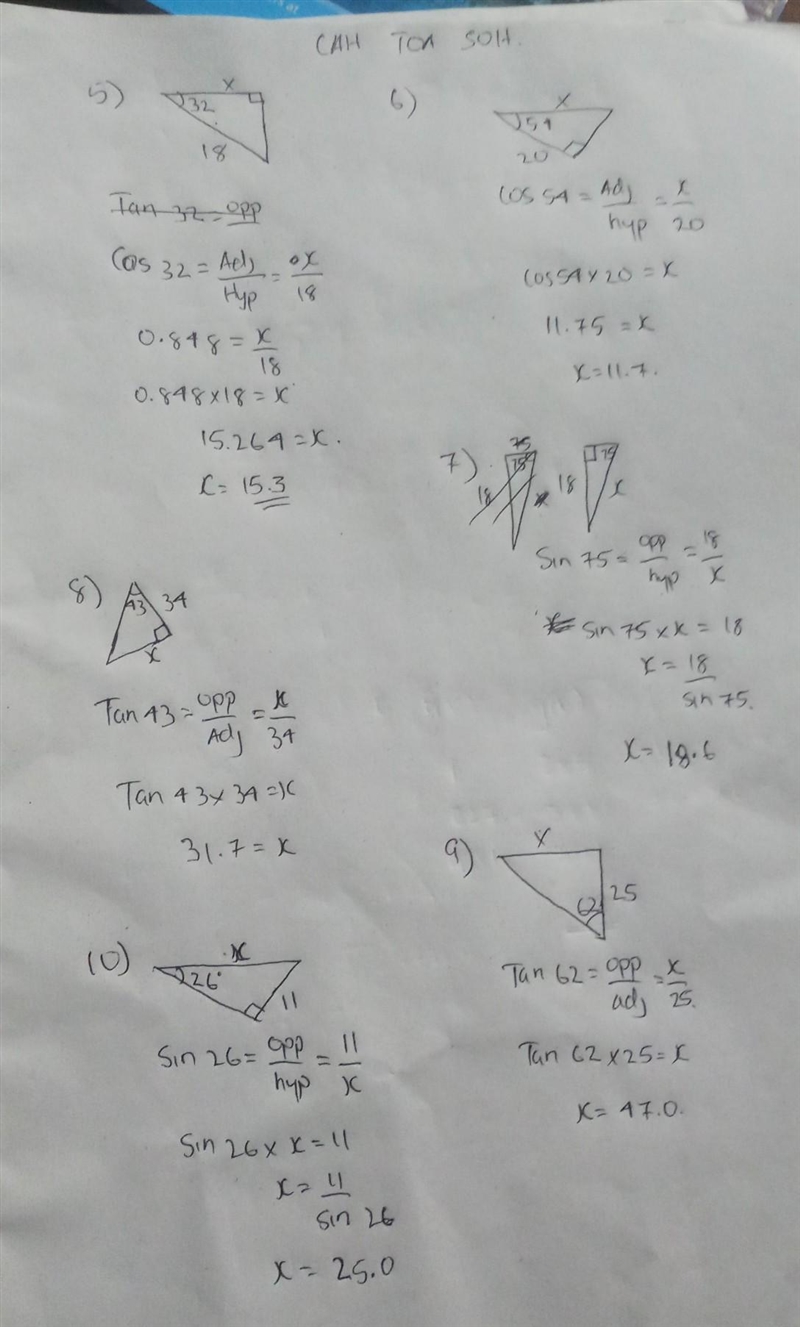 CAH TOA SOH.
5)
x
32
18
Tan 32 = opp
Cos 32 = Adj/Hyp = x/18
0.848 = x/18
0.848 x 18 = x
15.264 = x.
x = 15.3
6)
x
54
20
Cos 54 = Adj/hyp = x/20
Cos 54 x 20 = x
11.75 = x
x = 11.7.
7)
75
75
18
18
75
x
Sin 75 = opp/hyp = 18/x
Sin 75 x x = 18
x = 18/sin 75.
x = 18.6
8)
43
34
x
Tan 43 = opp/Adj = x/34
Tan 43 x 34 = x
31.7 = x
9)
x
25
62
Tan 62 = opp/adj = x/25.
Tan 62 x 25 = x
x = 47.0.
10)
x
26°
11
Sin 26 = opp/hyp = 11/x
Sin 26 x x = 11
x = 11/sin 26
x = 25.0